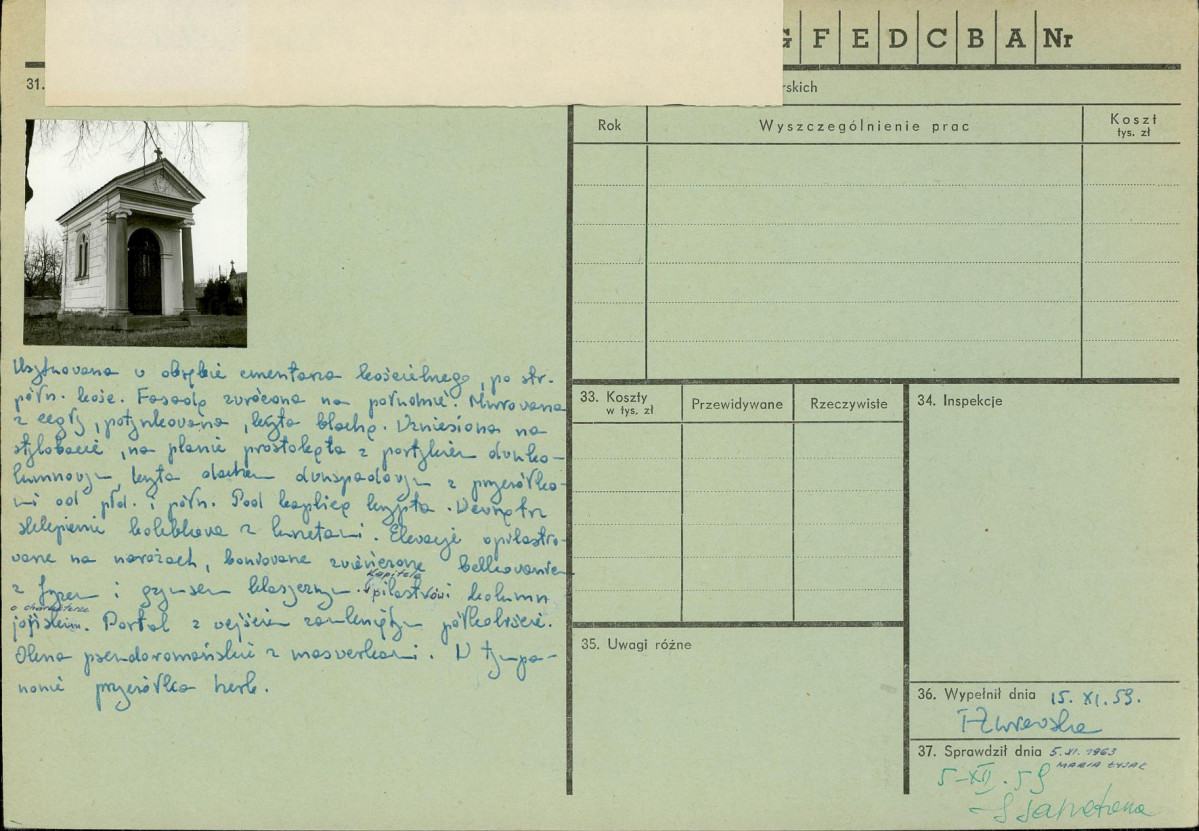 G F E D C B A Nr
31.
rskich
Rok Wyszczególnienie prac Koszt
tys. zł
Usytuowana w obrębie cmentarza kościelnego, po str.
półn. kośc. Fasadą zwrócona na południe. Murowana
z cegły, potynkowana, kryta blachą. Wzniesiona na
stylobacie, na planie prostokąta z portykiem dwuko-
lumnowym, kryta dachem dwuspadowym z przyczółka-
mi od płd. i półn. Pod kaplicą krypta. Wewnątrz
sklepienie kolebkowe z lunetami. Elewacje opilastro-
wane na narożach, boniowane zwieńczone belkowaniem
z fryzem i gzymsem
Kapitele
pilastrów i kolumn
o charakterze
jońskim. Portal z wejściem zamkniętym półkoliście.
Okna pseudoromańskie z maswerkami. W tympa-
nonie przyczółka herb.
33. Koszty
w tys. zł
Przewidywane Rzeczywiste
34. Inspekcje
35. Uwagi różne
36. Wypełnił dnia 15. XI. 59.
37. Sprawdził dnia 5. XI. 1963
MARIA ŁYJAK
5-XII. 59